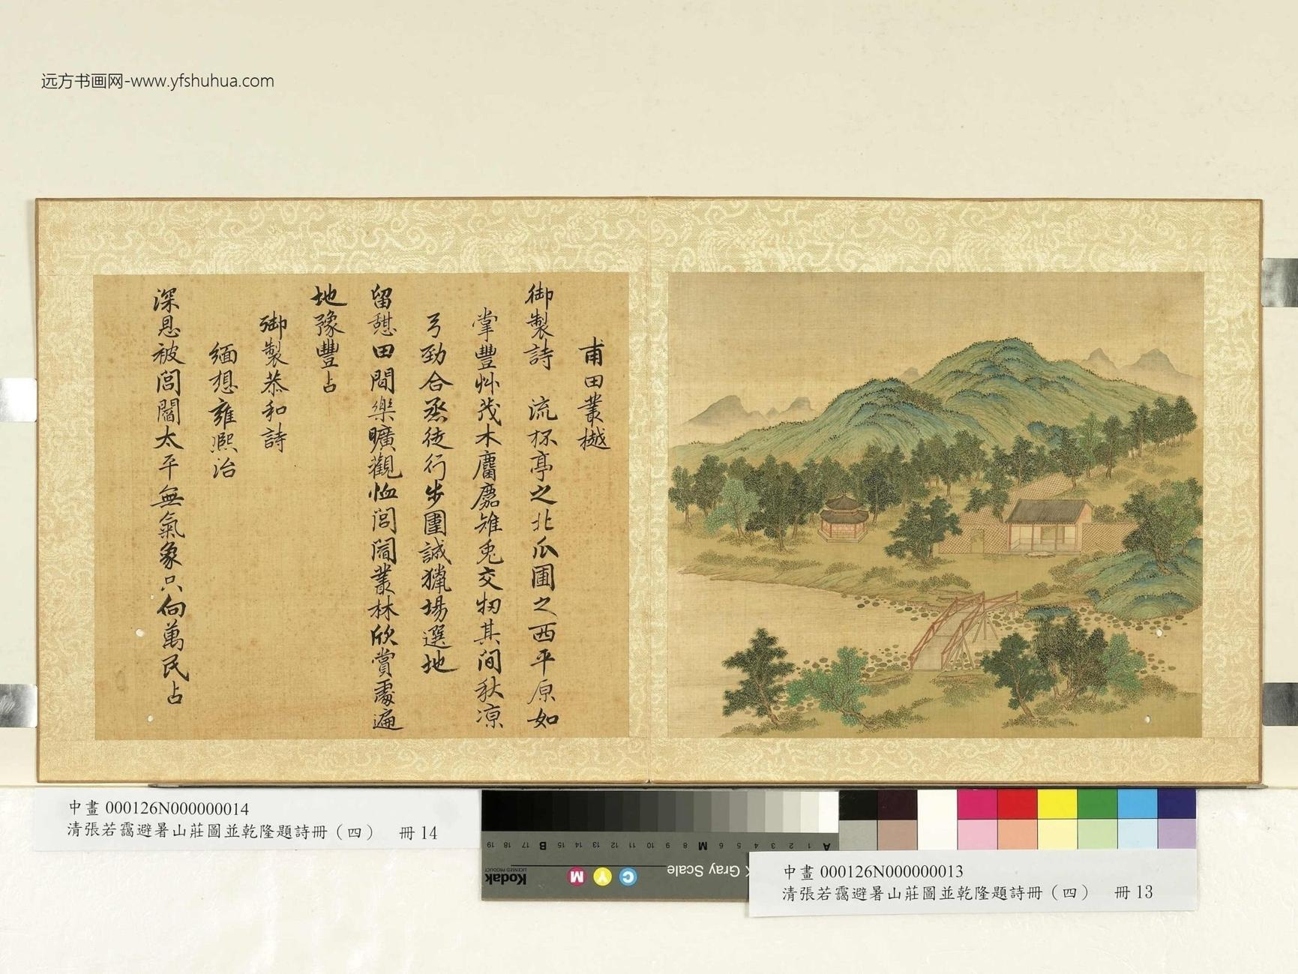 远方书画网-www.yfshuhua.com
甫田叢樾
御製詩 流杯亭之北瓜圃之西平原如
掌豐艸茂木麕麚雉兎交牣其間秋涼
弓勁合烝徒行步圍誠獵場選地
留憩田間樂曠觀恤閭閻叢林欣賞處遍
地豫豐占
御製恭和詩
緬想雍熙治
深恩被閭閻太平無氣象只向萬民占
中畫 000126N000000014
清張若靄避暑山莊圖並乾隆題詩冊（四） 冊 14
中畫 000126N000000013
清張若靄避暑山莊圖並乾隆題詩冊（四） 冊 13
A 1 2 3 4 5 6 M 8 9 10 11 12 13 14 15 B 17 18 19
Gray Scale
C Y M
Kodak
LICENSED PRODUCT